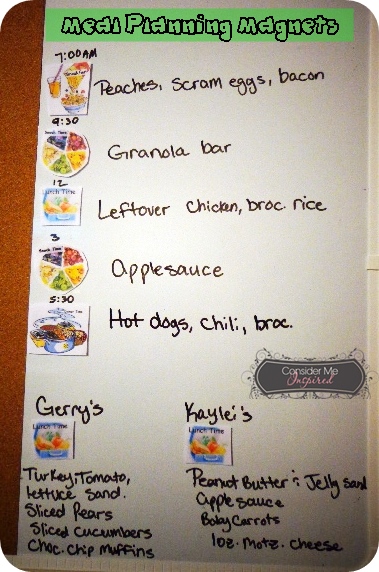 Meal Planning Magnets
7:00AM
Breakfast
Peaches, Scram eggs, bacon
9:30
Snack Time
Granola bar
12
Lunch Time
Leftover Chicken, broc. rice
3
Snack Time
Applesauce
5:30
Hot dogs, Chili, broc.
Consider Me
Inspired
Gerry's
Kaylei's
Lunch Time
Lunch Time
Turkey, Tomato,
lettuce Sand.
Sliced Pears
Sliced Cucumbers
Choc. Chip Muffins
Peanut Butter & Jelly Sand
applesauce
Baby Carrots
1oz. Motz. Cheese